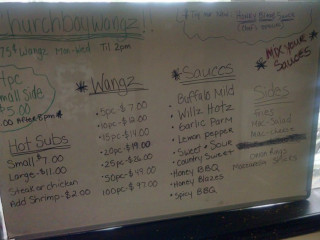 Churchboy Wangz!!
.75¢ Wangz Mon-Wed Til 2pm
Try our new Honey Blaze Sauce
* MIX YOUR SAUCES *
4pc
Small Side
$5.00
Hot Subs
Small $7.00
Large - $11.00
Steak or chicken
Add Shrimp - $2.00
* Wangz
• 5pc - $7.00
• 10pc - $12.00
• 15pc - $14.00
• 20pc - $19.00
• 25pc - $26.00
• 50pc - $49.00
100pc - $97.00
* Sauces
• Buffalo Mild
• Willz Hotz
• Garlic Parm
• Lemon Pepper
• Sweet + Sour
• Country Sweet
• Honey BBQ
• Honey Blazes
• Spicy BBQ
Sides
Fries
Mac Salad
Mac + Cheese
Onion Rings
Mozzarella Sticks